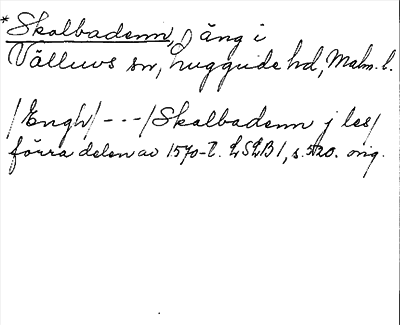 *Skolbadenn, j äng i
Välluvs sn, Luggude hd, Malm. l.
/Engh/ - - - /Skalbadenn j les/
förra delen av 1570-t. LSLB 1, s. 320. orig.